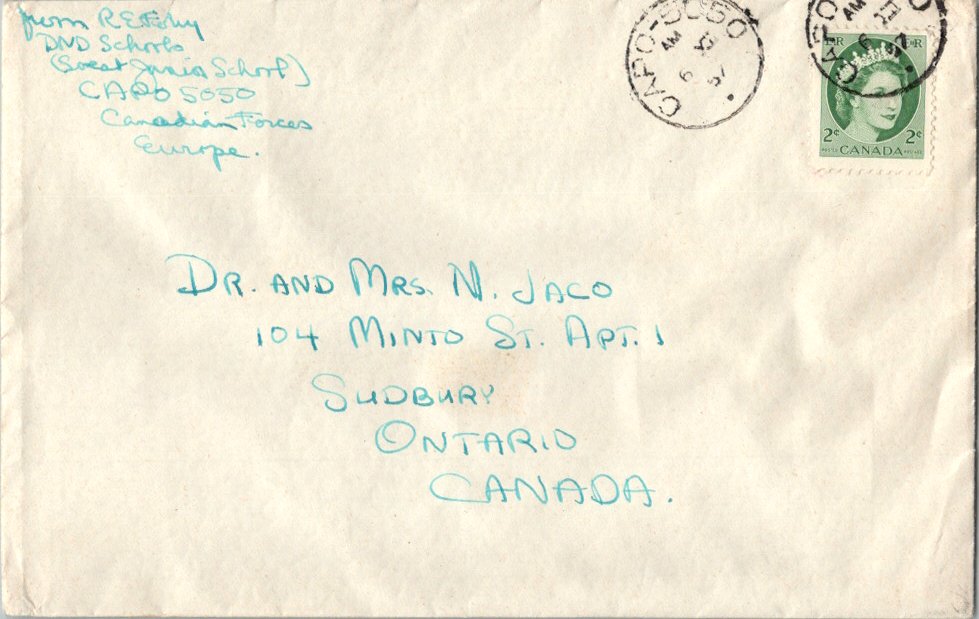 from R E
DND Schools
(Soest Junior School)
CAPO 5050
Canadian Forces
Europe.
CAPO-5050
AM
17
6
57
CAPO
AM
17
6
57
E R
2¢ 2¢
POSTES CANADA POSTAGE
DR. AND MRS. N. JACO
104 MINTO ST. APT. 1
SUDBURY
ONTARIO
CANADA.